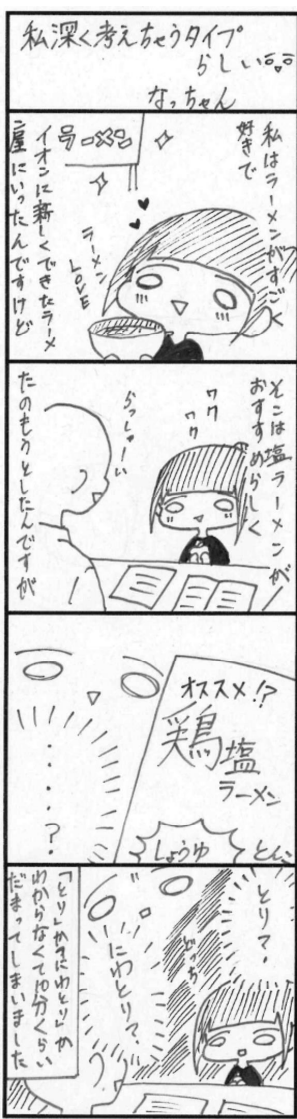 私深く考えちゃうタイプ
らしい
なっちゃん
私はラーメンがすごく
好きで
ラーメン
ラーメン
LOVE
イオンに新しくできたラーメ
ン屋にいったんですけど
そこは塩ラーメンが
おすすめらしく
ワク
ワク
らっしゃーい
たのもうとしたんですが
オススメ!?
鶏塩
ラーメン
しょうゆ
とんこ
・・・・?
とり?
どっち
にわとり?
「とり」か「にわとり」か
わからなくて10分くらい
だまってしまいました